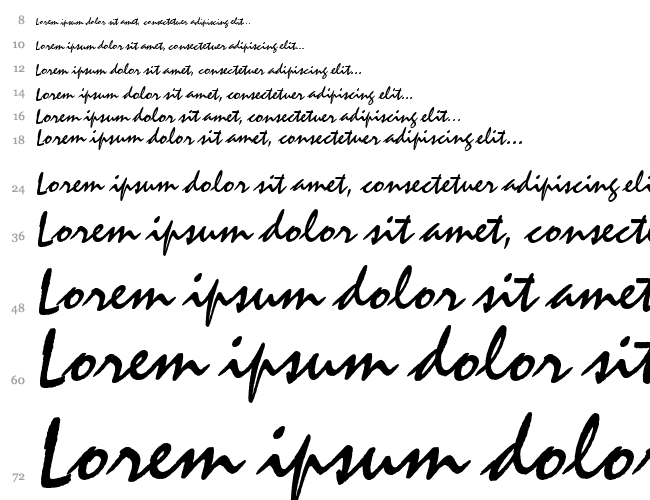 8 Lorem ipsum dolor sit amet, consectetuer adipiscing elit...
10 Lorem ipsum dolor sit amet, consectetuer adipiscing elit...
12 Lorem ipsum dolor sit amet, consectetuer adipiscing elit...
14 Lorem ipsum dolor sit amet, consectetuer adipiscing elit...
16 Lorem ipsum dolor sit amet, consectetuer adipiscing elit...
18 Lorem ipsum dolor sit amet, consectetuer adipiscing elit...
24 Lorem ipsum dolor sit amet, consectetuer adipiscing eli
36 Lorem ipsum dolor sit amet, consect
48 Lorem ipsum dolor sit amet
60 Lorem ipsum dolor sit
72 Lorem ipsum dolo